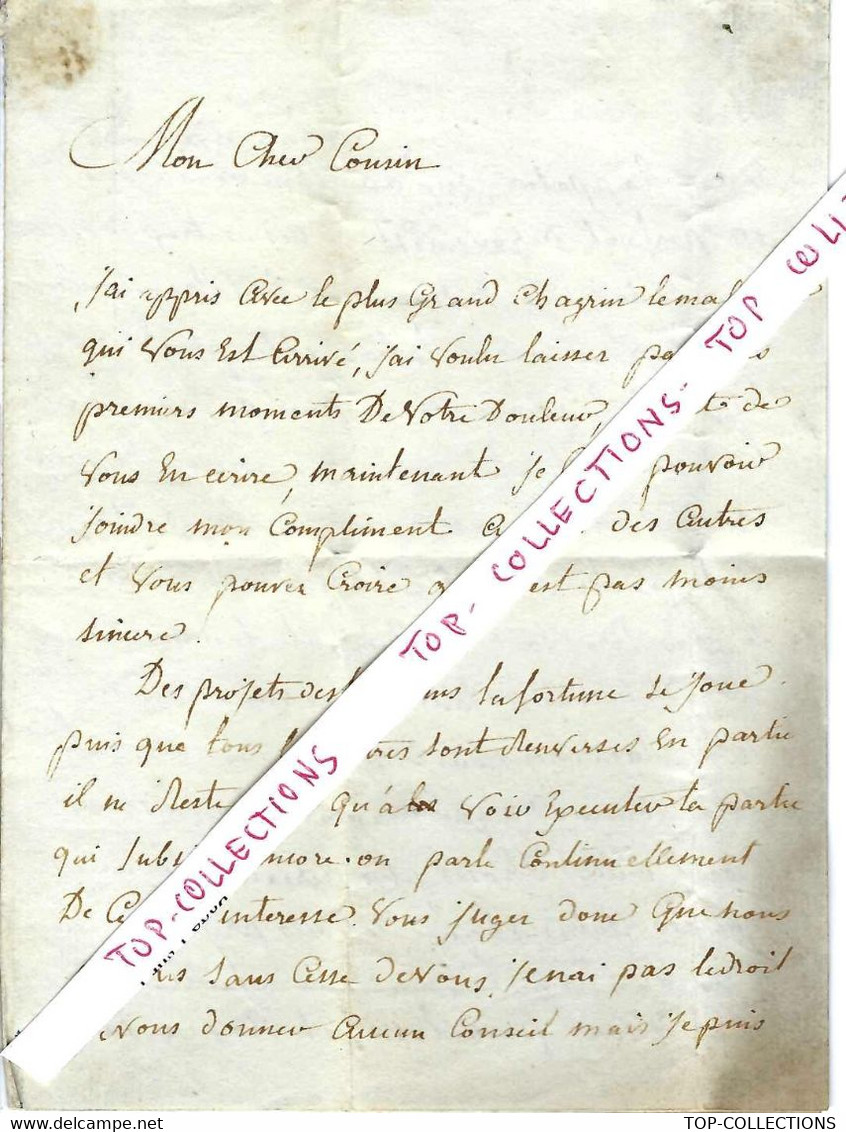 Mon Cher Cousin
J'ai appris avec le plus Grand Chagrin le mal
qui Vous Est Arrivé, j'ai voulu laisser
premiers moments De Votre Douleur, de
Vous En ecrire, maintenant Je pouvoir
Joindre mon Compliment A des Autres
et Vous pouvez Croire est pas moins
sincere.
Des projets des la fortune se Joue
puis que tous sont Renversés En partie
il ne Reste qu'à voir Executer la partie
qui Subsi ncore. on parle Continuellement
De Ce interesse. Vous Juger donc Que nous
sans Cesse de Vous, Je n'ai pas le droit
Vous donner Aucun Conseil mais Je puis
TOP-COLLECTIONS
TOP-COLLECTIONS
TOP COLLECTIONS